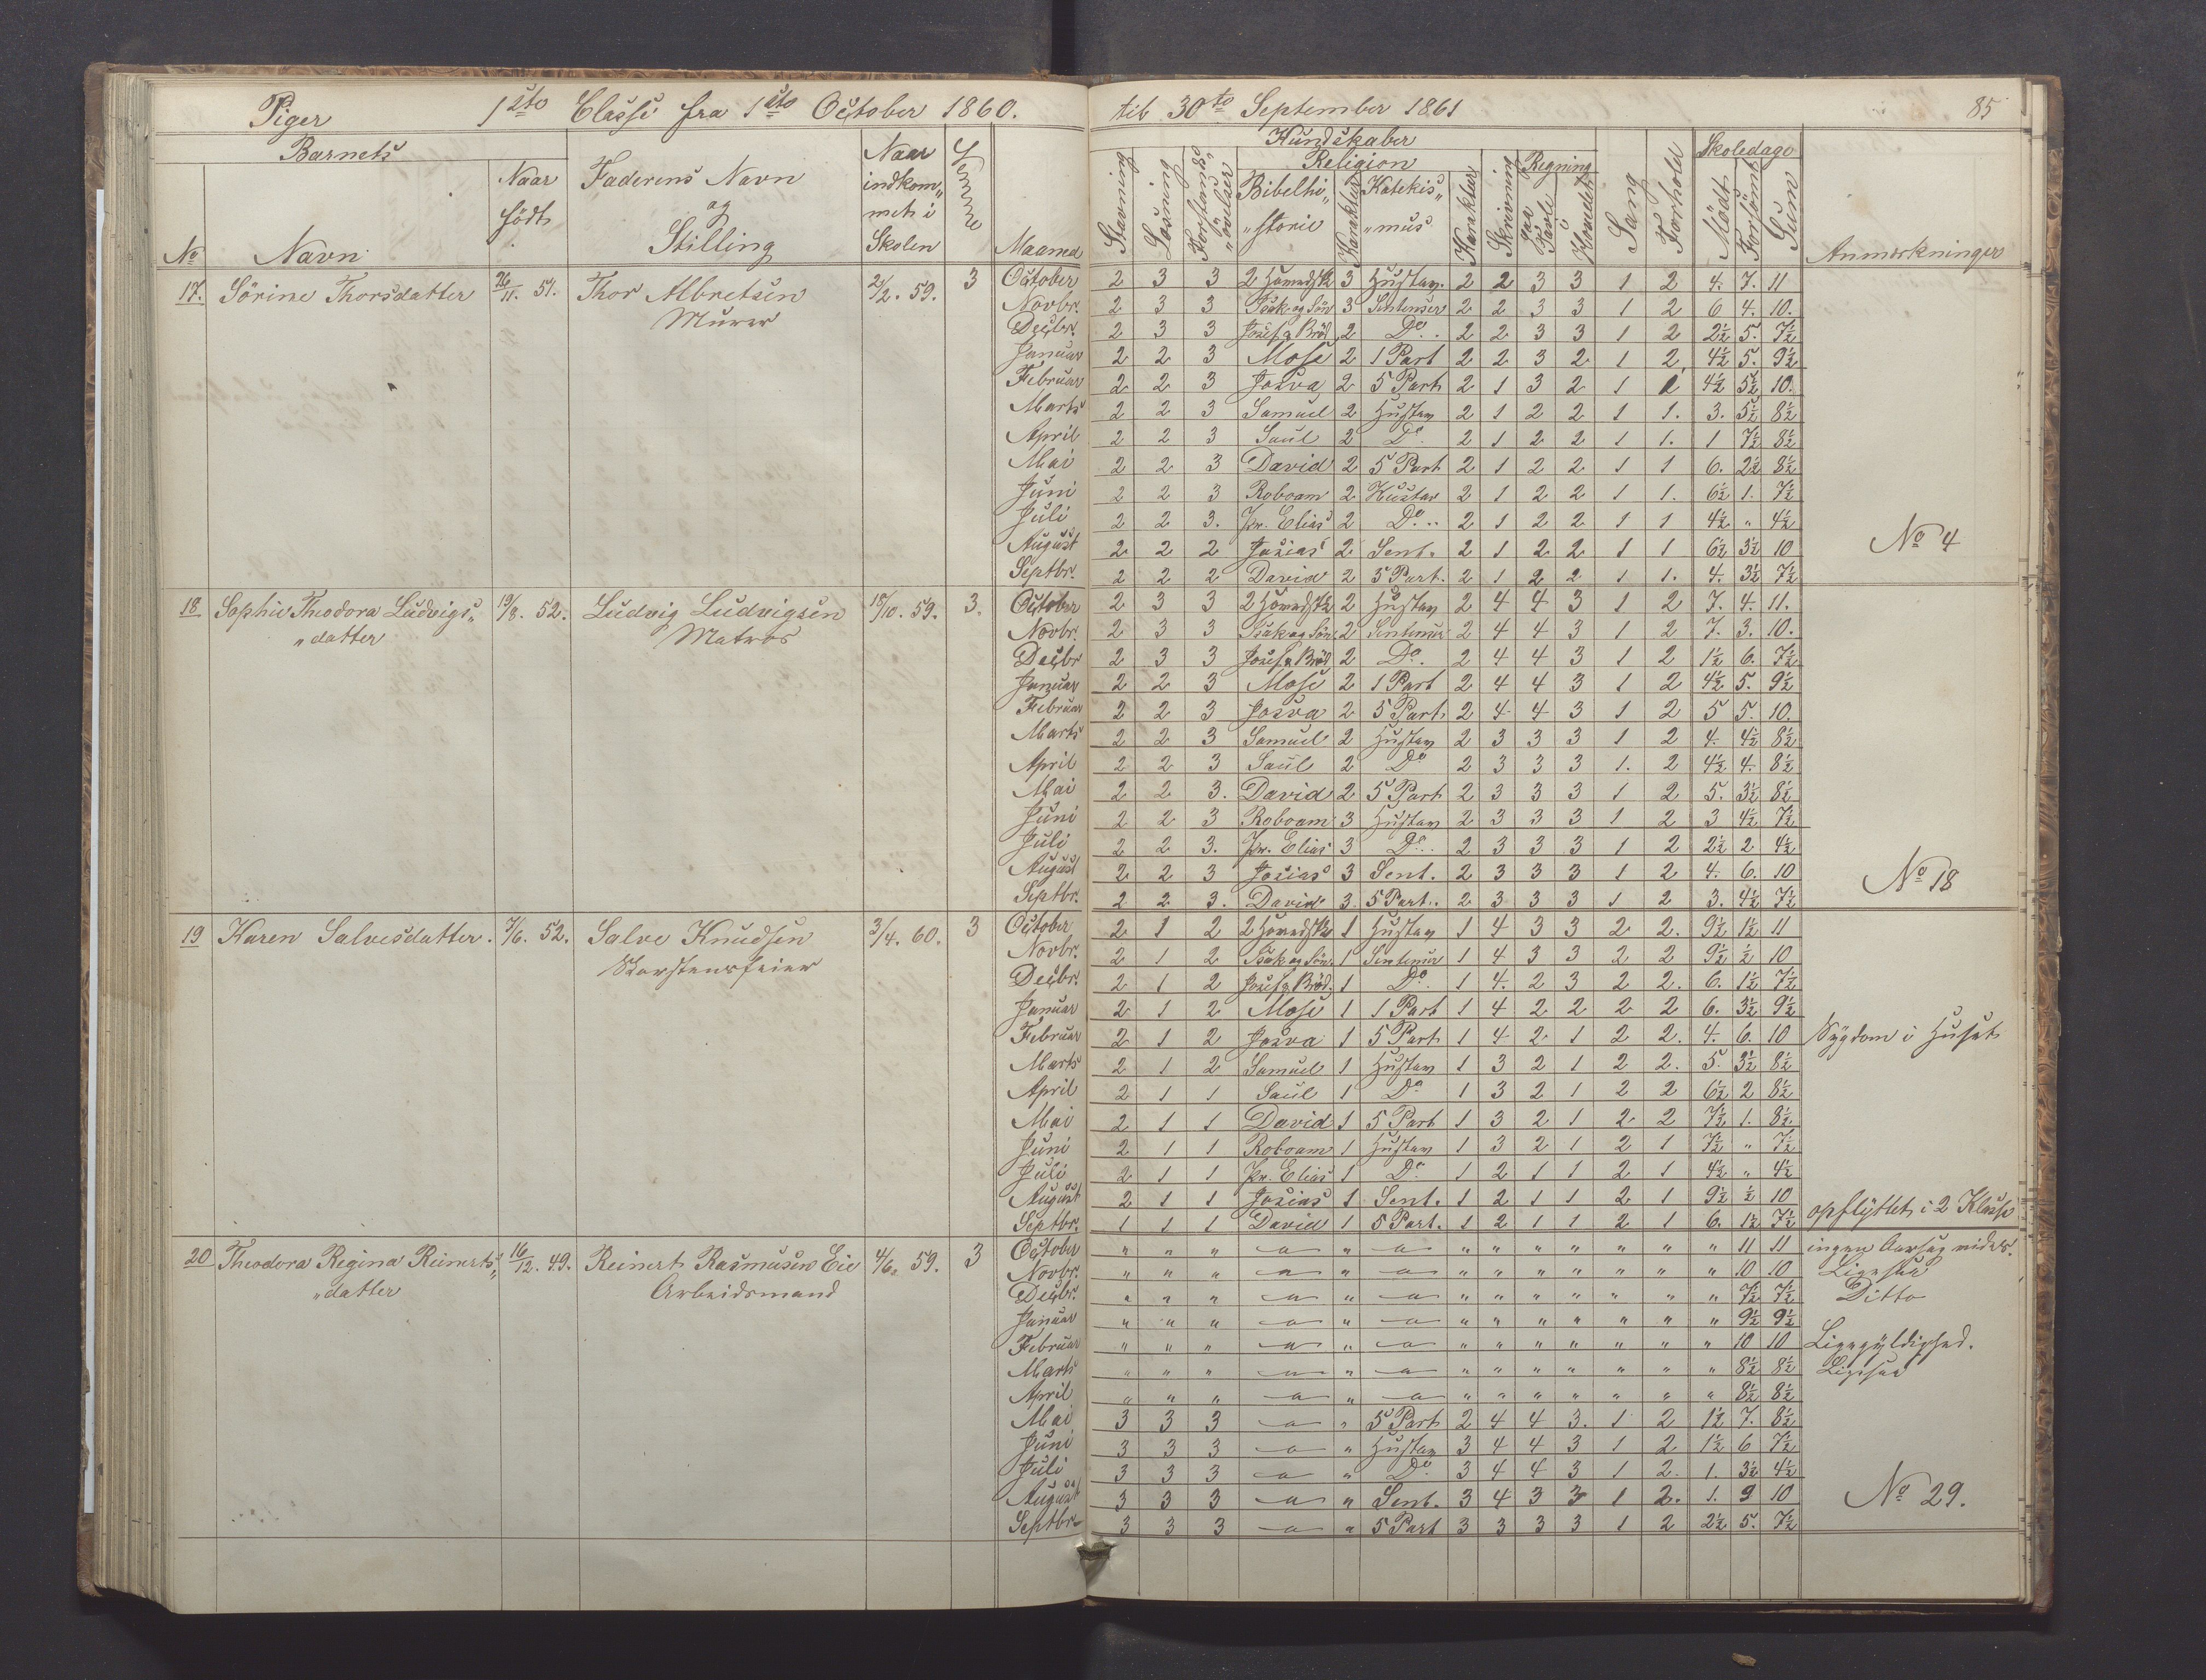 Piger 1ste Classe fra 1ste October 1860. til 30te September 1861 85
Barnets Kundskaber Skoledage
Religion Regning
No Navn Naar født Faderens Navn og Stilling Naar indkommet i Skolen Evne Maaned Stavning Læsning Forstandsøvelser Bibelhistorie Karakter Katekismus Karakter Skrivning paa Tavle i Hovedet Sang Forhold Mødt Forsømt Sum Anmærkninger
17. Sörine Thorsdatter 26/11. 51. Thor Albretsen 2/2. 59. 3 October 2 3 3 2 Hovedstk 3 Hustav. 2 2 3 3 1 2 4. 7. 11
Murer Novbr. 2 3 3 Isak og Søn 3 Sentenser 2 2 3 3 1 2 6 4. 10.
Decbr. 2 3 3 Josef & Brød 2 Do. 2 2 3 3 1 2 2½ 5. 7½
Januar 2 2 3 Mose 2 1 Part 2 2 3 2 1 2 4½ 5. 9½
Februar 2 2 3 Josva 2 5 Part 2 1 3 2 1 4½ 5½ 10.
Marts 2 2 3 Samuel 2 Hustav 2 1 2 2 1 1. 3. 5½ 8½
April 2 2 3 Saul 2 Do. 2 1 2 2 1 1. 1 7½ 8½
Mai 2 2 3 David 2 5 Part 2 1 2 2 1 1 6. 2½ 8½
Juni 2 2 3 Roboam 2 Hustav 2 1 2 2 1 1. 6½ 1. 7½
Juli 2 2 3. Pr. Elias 2 Do.. 2 1 2 2 1 1 4½ " 4½
August 2 2 2 Josias 2 Sent. 2 1 2 2 1 1 6½ 3½ 10 No 4
Septbr. 2 2 2 David 2 5 Part. 2 1 2 2 1 1. 4. 3½ 7½
18 Sophie Theodora Ludvigs„ 19/8. 52. Ludvig Ludvigsen 18/10. 59. 3. October 2 3 3 2 Hovedstk 2 Hustav 2 4 4 3 1 2 7. 4. 11.
„datter Matros Novbr. 2 3 3 Isak og Søn 2 Sentenser 2 4 4 3 1 2 7. 3. 10.
Decbr 2 3 3 Josef & Brød 2 Do. 2 4 4 3 1 2 1½ 6. 7½
Januar 2 2 3 Mose 2 1 Part 2 4 4 3 1 2 4½ 5. 9½
Februar 2 2 3 Josva 2 5 Part 2 4 4 3 1 2 5 5. 10.
Marts 2 2 3 Samuel 2 Hustav 2 3 3 3 1 2 4. 4½ 8½
April 2 2 3 Saul 2 Do 2 3 3 3 1. 2 4½ 4. 8½
Mai 2 2 3. David 2 5 Part 2 3 3 3 1 2 5. 3½ 8½
Juni 2 2 3 Roboam 3 Hustav 2 3 3 3 1 2 3 4½ 7½
Juli 2 2 3. Pr. Elias 3 Do.. 2 3 3 3 1 2 2½ 2 4½
August 2 2 3 Josias 3 Sent. 2 3 3 3 1 2 4. 6. 10 No 18
Septbr. 2 2 3. David 3. 5 Part. 2 3 3 3 1 2 3. 4½ 7½
19 Karen Salvesdatter. 7/6. 52. Salve Knudsen 3/4. 60. 3 October 2 1 2 2 Hovedstk 1 Hustav 1 4 3 3 2 2. 9½ 1½ 11
Skorstensfeier Novbr. 2 1 2 Isak og Søn. 1 Sentenser 1 4 3 3 2 2 9½ ½ 10
Decbr. 2 1 2 Josef & Brød. 1 Do. 1 4. 2 3 2 2. 6. 1½ 7½
Januar 2 1 2 Mose 1 1 Part 1 4 2 2 2 2 6. 3½ 9½
Februar 2 1 2 Josva 1 5 Part 1 4 2 1 2 2. 4. 6. 10 Sygdom i Huset
Marts 2 1 2 Samuel 1 Hustav 1 3 2 1 2 2. 5. 3½ 8½
April 2 1 1 Saul 1 Do 1 3 2 1 2 2 6½ 2 8½
Mai 2 1 1 David 1 5 Part 1 3 2 1 2 2 7½ 1. 8½
Juni 2 1 1 Roboam 1 Hustav 1 3 2 1 2 1 7½ " 7½
Juli 2 1 1 Pr. Elias 1 Do 1 2 1 1 2 1 4½ " 4½
August 2 1 1 Josias 1 Sent. 1 2 1 1 2 1 9½ ½ 10
Septbr. 1 1 1 David 1 5 Part. 1 2 1 1 2 1 6. 1½ 7½ opflyttet i 2 Klasse
20 Theodora Regina Reinerts„ 16/12. 49. Reinert Rasmusen Eie 4/6. 59. 3 October " " " " " " " " " " " " " 11 11 ingen Aarsag
„datter Arbeidsmand Novbr. " " " " " " " " " " " " " 10 10 Ligesaa
Decbr. " " " " " " " " " " " " " 7½ 7½ Ditto
Januar " " " " " " " " " " " " " 9½ 9½
Februar " " " " " " " " " " " " " 10 10 Ligegyldighed.
Marts " " " " " " " " " " " " " 8½ 8½ Ligesaa
April " " " " " " " " " " " " " 8½ 8½
Mai 3 3 3 " " 5 Part 2 4 4 3. 1 2 1½ 7. 8½
Juni 3 3 3 " " Hustav 3 4 4 3 1 2 1½ 6 7½
Juli 3 3 3 " " Do. 3 4 4 3 1 2. 1. 3½ 4½
August 3 3 3 " " Sent. 3 4 3 3 1 2. 1. 9 10 No 29.
Septbr. 3 3 3 " " 5 Part 3 3 3 3 1 2 2½ 5. 7½